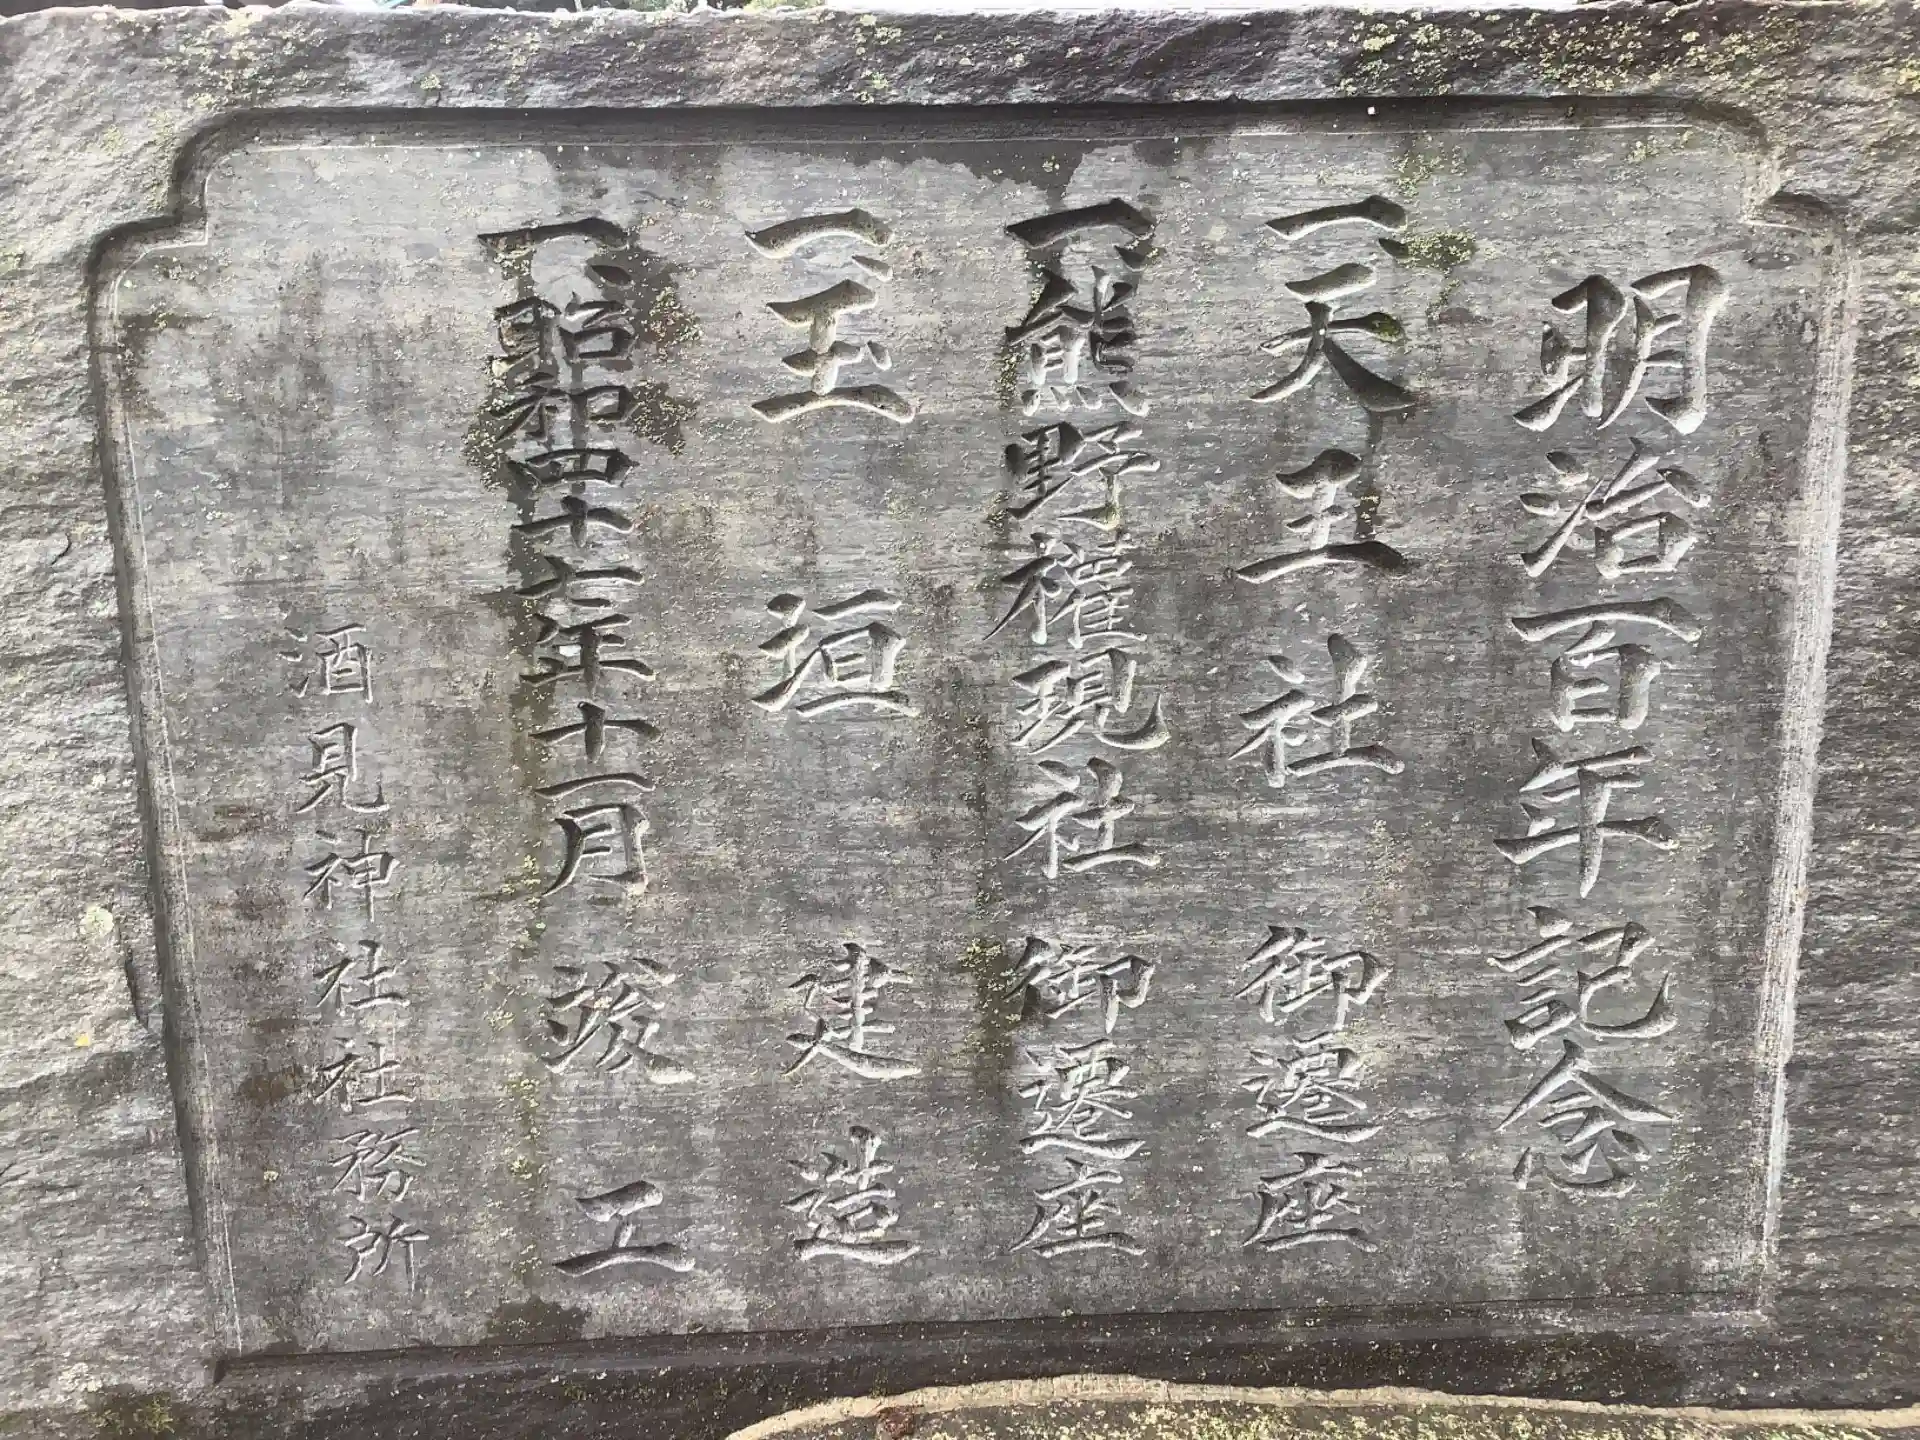 明治百年記念
一、天王社御遷座
一、熊野權現社御遷座
一、玉垣建造
一、昭和四十七年十一月竣工
酒見神社社務所